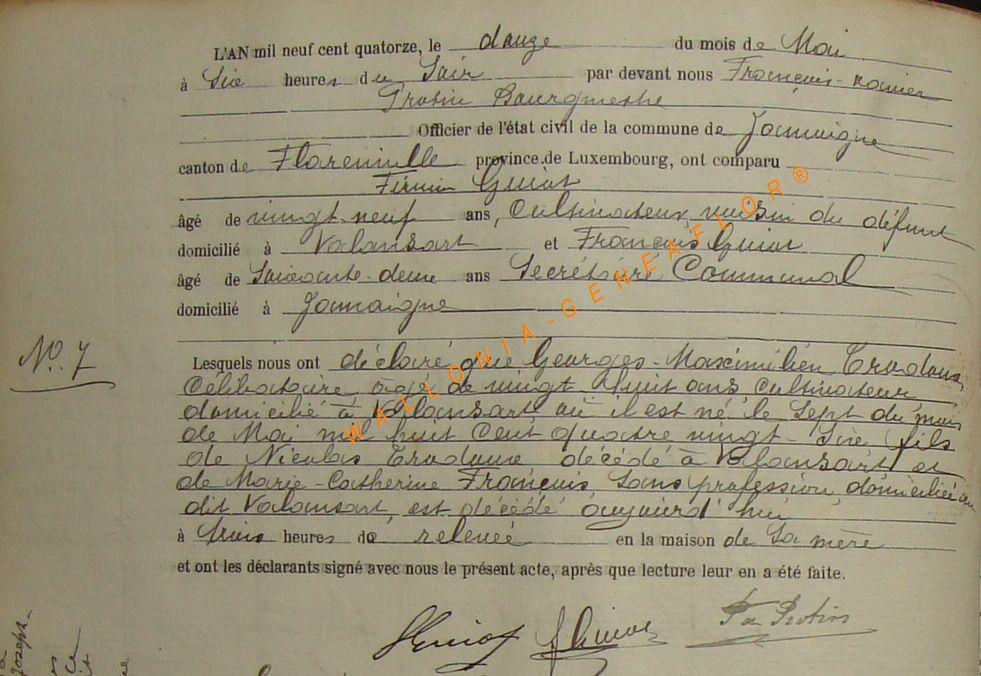 L'AN mil neuf cent quatorze, le douze du mois de Mai
à Six heures du Soir par devant nous François-Xavier
Protin Bourgmestre
Officier de l'état civil de la commune de Jamoigne
canton de Florenville province de Luxembourg, ont comparu
Firmin Guiot
âgé de vingt-neuf ans, Cultivateur, voisin du défunt
domicilié à Valansart et François Guiot
âgé de Soixante-deux ans Secrétaire Communal
domicilié à Jamoigne
No. 7
Lesquels nous ont déclaré que Georges-Maximilien
Célibataire, âgé de vingt huit ans, Cultivateur
domicilié à Valansart où il est né le Sept du mois
de Mai mil huit Cent quatre vingt-Six fils
de Nicolas décédé à Valansart et
de Marie-Catherine François, Sans profession, domiciliée au
dit Valansart, est décédé aujourd'hui
à trois heures de relevée en la maison de Sa mère
et ont les déclarants signé avec nous le présent acte, après que lecture leur en a été faite.
FGuiot FGuiot Protin
Joseph-
WALLONIA-GENEAFLOR®